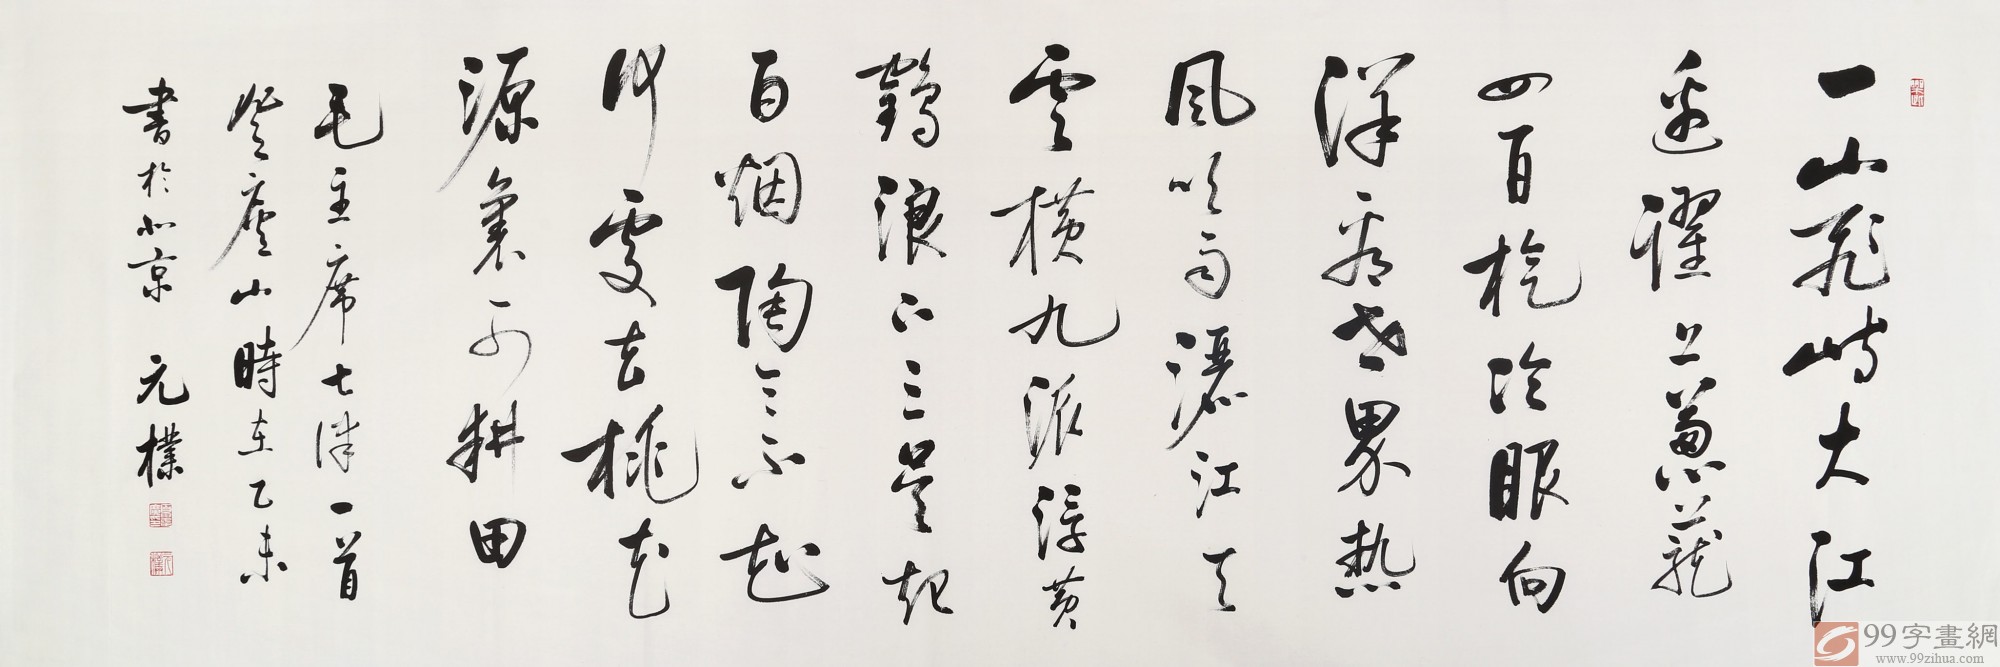 一山飛峙大江
邊躍上葱蘢
四百旋冷眼向
洋看世界热
風吹雨灑江天
雲横九派浮黄
鶴浪下三吴起
白烟陶令不知
何處去桃花
源裏可耕田
毛主席七律一首
登廬山時在乙未
書於北京 元樸
99字畫網
www.99zihua.com